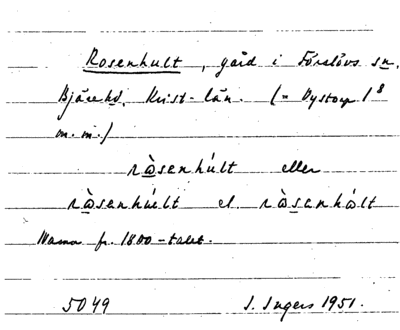 Rosenhult, gård i Förslövs sn,
Bjäre hd, Krist-län. (= Dystorp 1⁸
m.m.)
ràsenhúlt eller
ràsenhúlt el. ràsenhált
Namn fr. 1800-talet.
5049 I. Ingers 1951.